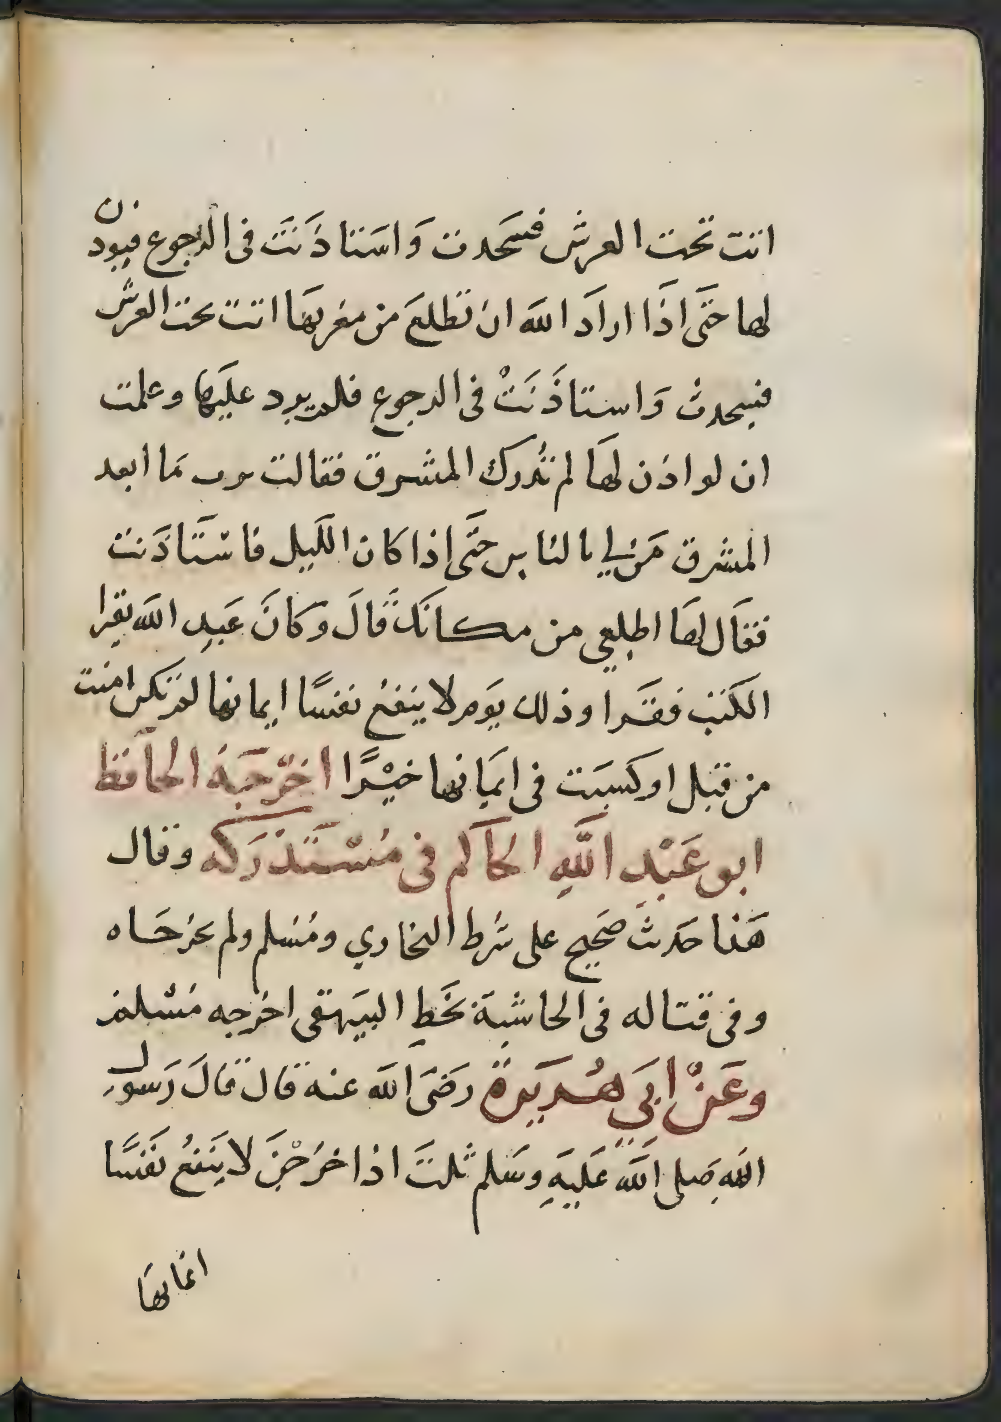 اتت تحت العرش فسَجدت وَاسَتاذَنَت فى الرجوع فيوذن
لها حتَى اذَا ارادَ اللهَ ان تَطلعَ من مغربهَا اتت تحت العرش
فسجدت وَاستاذَنَتْ فى الرجوع فلم يرد عليَها وعلمت
ان لو اذن لهَا لم تُدرك المشرق فقالت رب مَا ابعد
المشرق مَن لي بالناس حتَّى اذا كان اللَيل فاسْتَاذَنت
فقَال لهَا اطلعي من مكانَك قَالَ وكانَ عَبد الله يقرا
الكتب فقَرا وذلك يَوم لا ينفعُ نفسًا ايمانها لم تكن امنت
من قبل او كسبَت فى ايمَانها خيْرًا اخرَجَهُ الحَافظ
ابو عَبْدِ اللَّهِ الحَاكم فى مُسْتَدْرَكه وقال
هَذا حَديث صَحيح على شرط البخاري ومُسْلم ولم يخرجَاه
وفى قتاله فى الحاشيَة بخَطِ البيَهقى اخرجه مُسْلم
وعَنْ ابَي هُرَيرة رَضىَ الله عنه قال قَالَ رَسول
الله صَلى اللهَ عَليَهِ وسَلم ثلثَ اذا خرَجْنَ لا يَنفعُ نَفسًا
ايمَانهَا